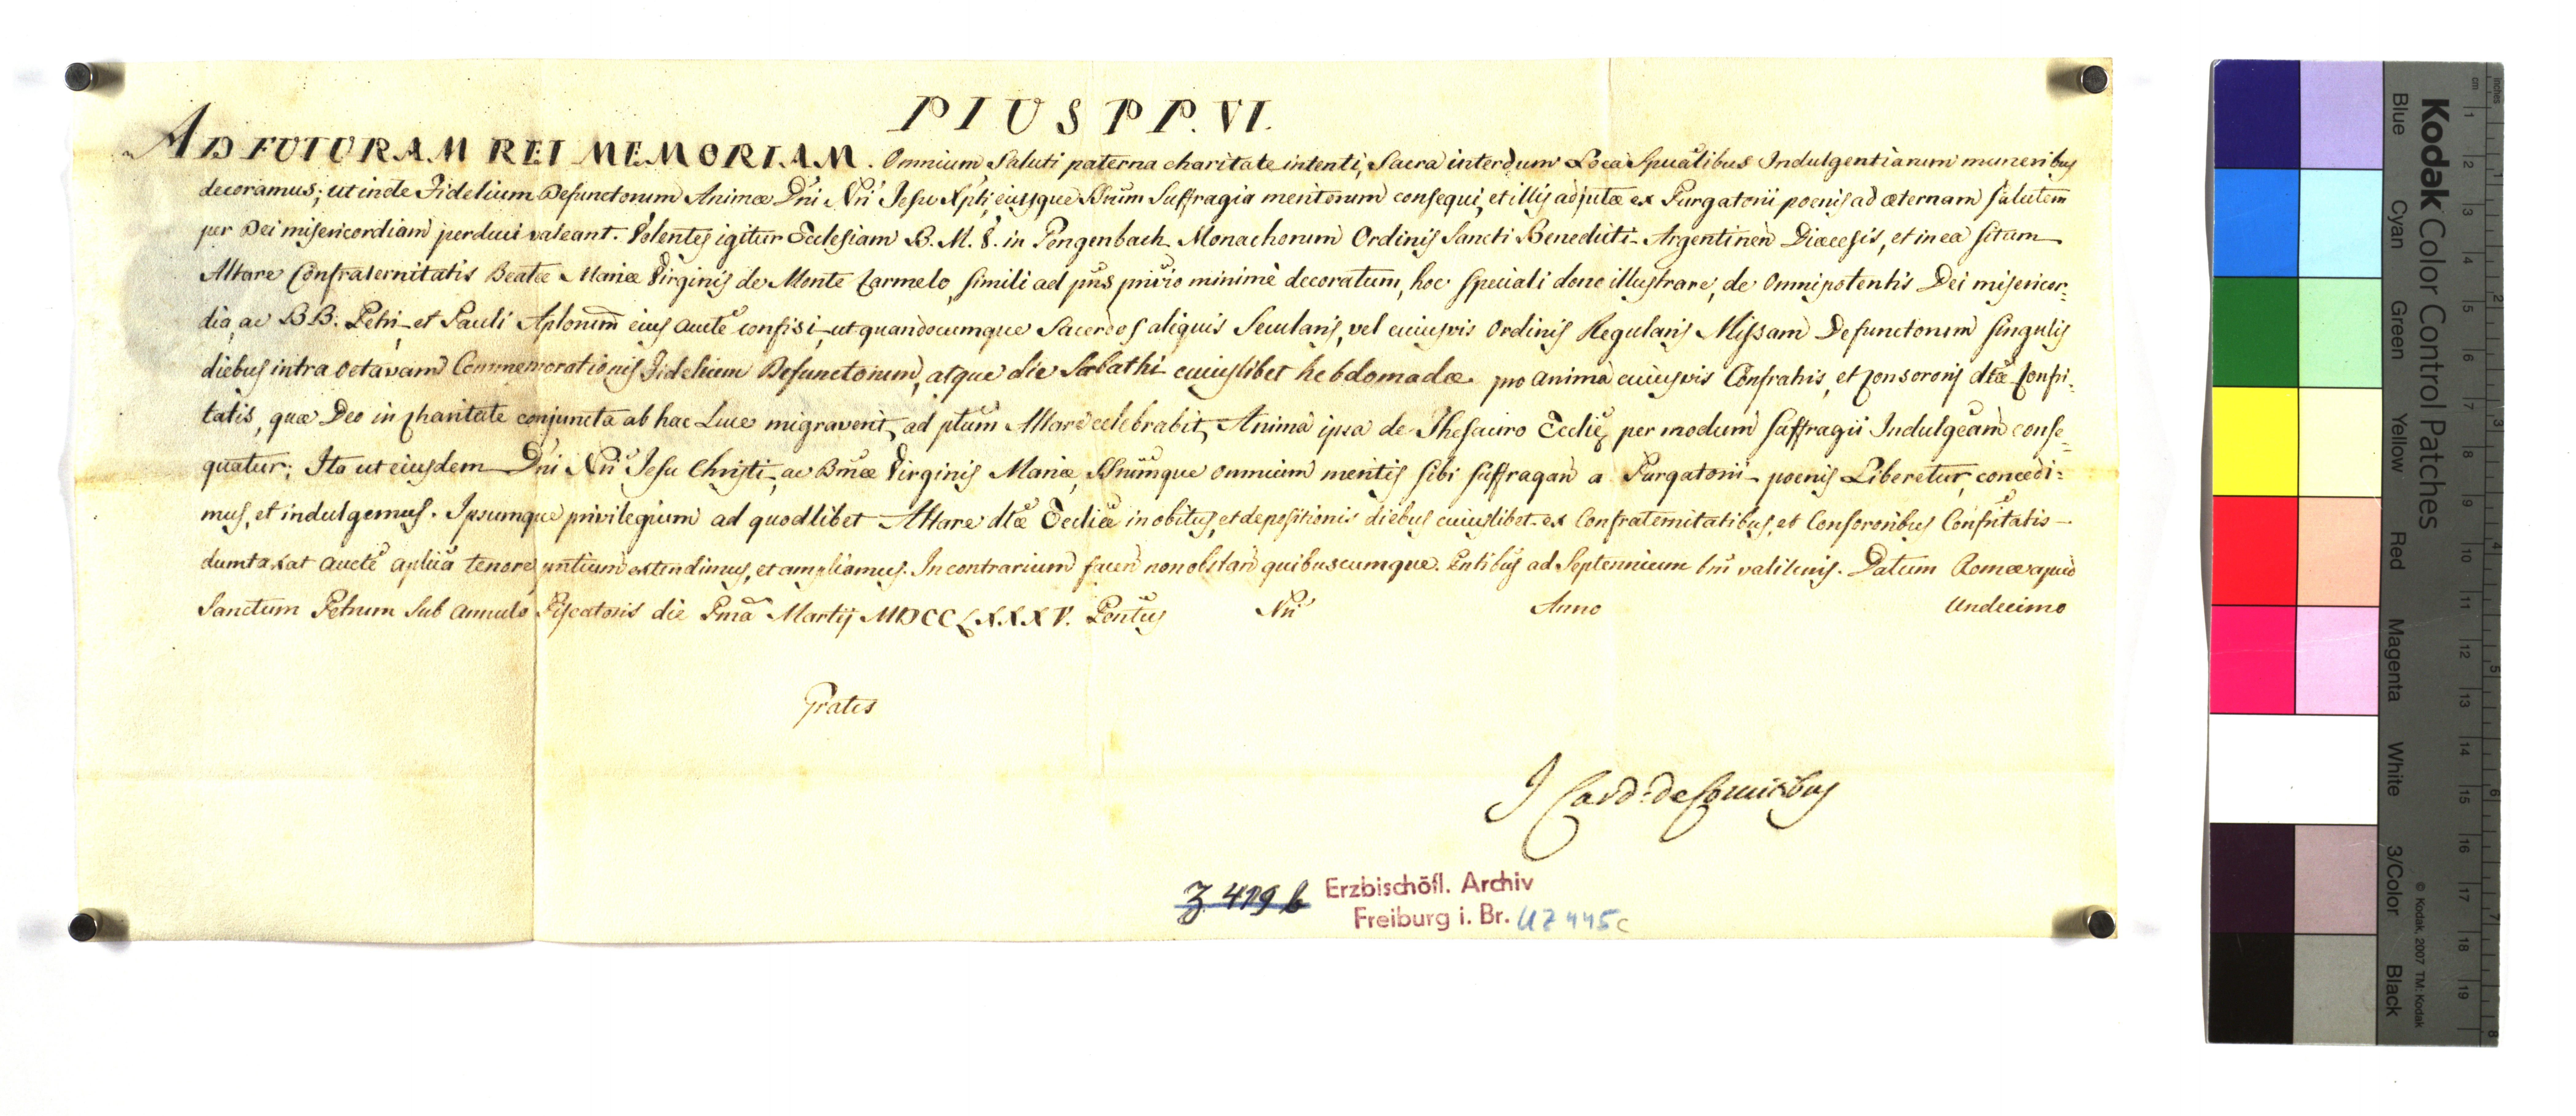 PIUS PP. VI.
AD FUTURAM REI MEMORIAM. Omnium Saluti paterna charitate intenti, Sacra interdum Loca Spualibus Indulgentiarum muneribus
decoramus; ut inde Fidelium Defunctorum Animæ Dni Nri Jesu Xpti, eiusque SSrum Suffragia meritorum consequi, et illis adjutæ ex Purgatorii poenis ad æternam salutem
per Dei misericordiam perduci valeant. Volentes igitur Ecclesiam B. M. V. in Gengenbach Monachorum Ordinis Sancti Benedicti Argentinen Diæcesis, et in ea sitam
Altare Confraternitatis Beatæ Mariæ Virginis de Monte Carmelo, simili ad pns privio minimè decoratum, hoc speciali dono illustrare, de Omnipotentis Dei misericor=
dia, ac BB. Petri et Pauli Aplorum eius aucte confisi, ut quandocumque Sacerdos aliquis Secularis, vel cuiusvis Ordinis Regularis Missam Defunctorum singulis
diebus intra Octavam Commemorationis Fidelium Defunctorum, atque die Sabbathi cuiuslibet hebdomadæ pro anima cuiusvis Confratris, et Consororis dtæ Confri=
tatis, quæ Deo in Charitate conjuncta ab hac Luce migraverit, ad ptum Altare celebrabit, Anima ipsa de Thesauro Eccliæ per modum suffragii Indulgeam conse=
quatur; Ita ut eiusdem Dni Nri Jesu Christi, ac Bmæ Virginis Mariæ, SSrumque omnium meritis sibi suffragan a Purgatorii poenis Liberetur, concedi=
mus, et indulgemus. Ipsumque privilegium ad quodlibet Altare dtæ Eccliæ in obitus, et depositionis diebus cuiuslibet ex Confraternitatibus, et Consororibus Confritatis
dumtaxat aucte aplica tenore pntium extendimus, et ampliamus. In contrarium facien non obstan quibuscumque. Pntibus ad Septennium tm valituris. Datum Romæ apud
Sanctum Petrum Sub Annulo Piscatoris die Pma Martij MDCCLXXXV. Pontus Nri Anno Undecimo
Gratis
J Card. de Comitibus
Z 419 b Erzbischöfl. Archiv
Freiburg i. Br. UZ 445c
Kodak Color Control Patches
Blue Cyan Green Yellow Red Magenta White 3/Color Black
© Kodak, 2007 TM: Kodak
cm 1 2 3 4 5 6 7 8 9 10 11 12 13 14 15 16 17 18 19
inches 1 2 3 4 5 6 7 8